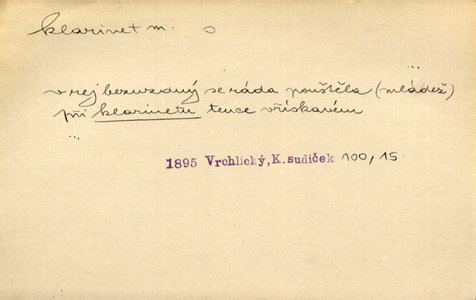 klarinet m.
v rej bezuzdný se ráda pouštěla (mládež)
při klarinetu tence vřískavém
...
1895 Vrchlický, K.sudiček 100/15.